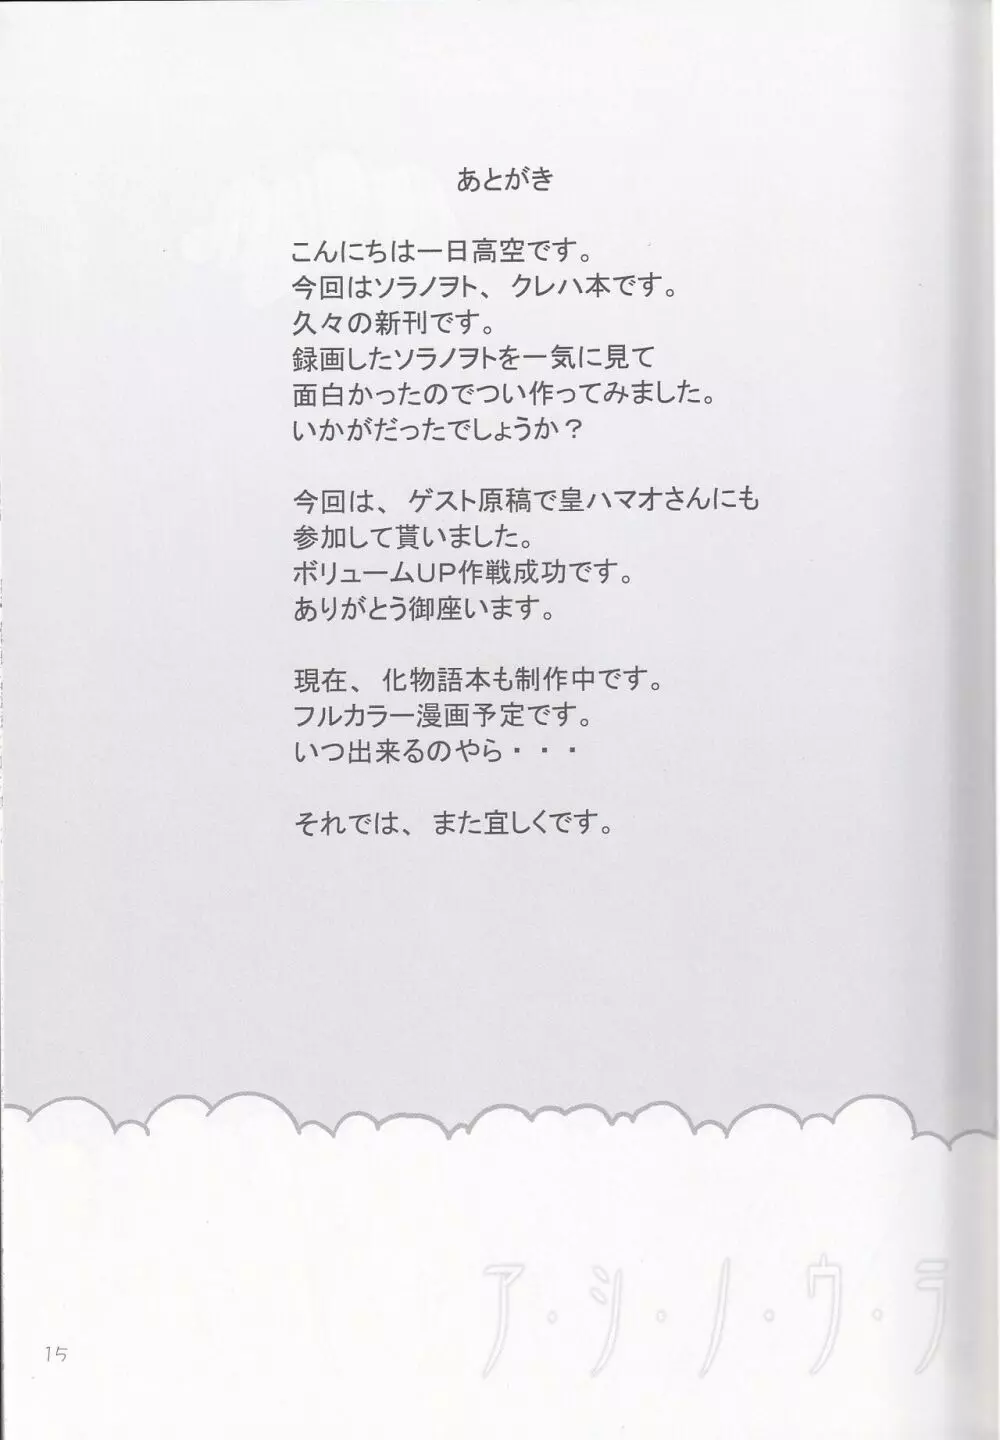 あとがき
こんにちは一日高空です。
今回はソラノヲト、クレハ本です。
久々の新刊です。
録画したソラノヲトを一気に見て
面白かったのでつい作ってみました。
いかがだったでしょうか？
今回は、ゲスト原稿で皇ハマオさんにも
参加して貰いました。
ボリュームＵＰ作戦成功です。
ありがとう御座います。
現在、化物語本も制作中です。
フルカラー漫画予定です。
いつ出来るのやら・・・
それでは、また宜しくです。
ア・シ・ノ・ウ・ラ
15